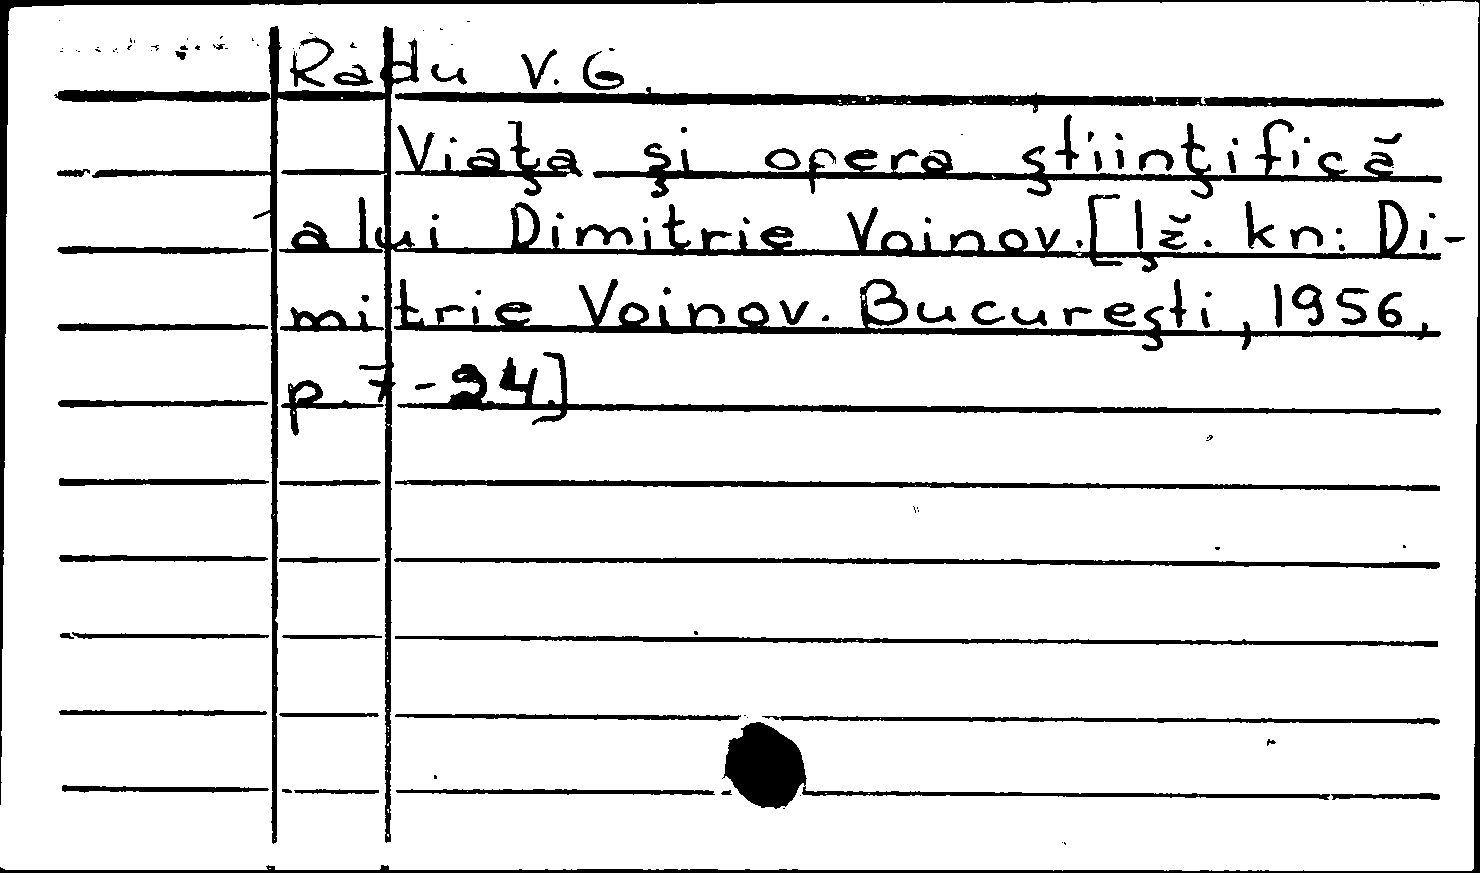 Radu V. G.
Viaţa şi opera ştiinţifică
a lui Dimitrie Voinov. [Iž. kn: Di-
mitrie Voinov. Bucureşti, 1956,
p. 7-24.]